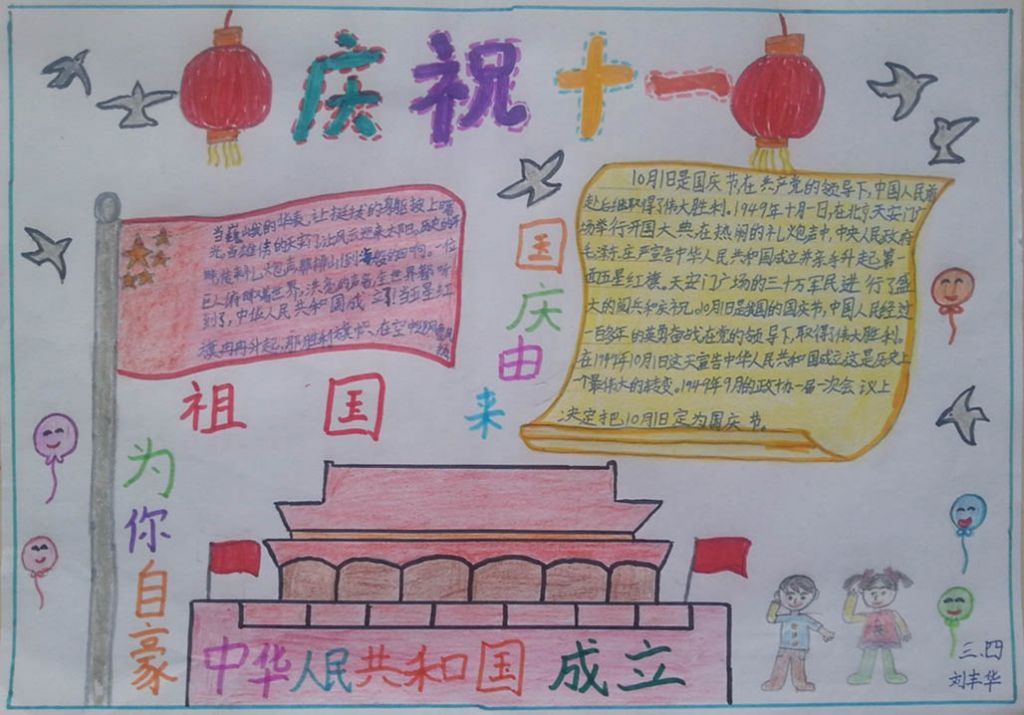 庆祝十一
当巍峨的华表,让挺拔的身躯披上曙
光,当雄伟的天安门,让风云迎来太阳,历史的
聆听到礼炮声那排山倒海般的回响。一位
巨人俯瞰着世界,洪亮的声音,全世界都听
到了,中华人民共和国成立了!当五星红
旗冉冉升起,那胜利旗帜,在空中
祖国
为你自豪
国庆由来
10月1日是国庆节在共产党的领导下,中国人民前
赴后继取得了伟大胜利。1949年十月一日,在北京天安门广
场举行开国大典,在热闹的礼炮声中,中央人民政府
毛泽东庄严宣告中华人民共和国成立并亲手升起第一
面五星红旗。天安门广场的三十万军民进行了盛
大的阅兵和庆祝。10月1日是我国的国庆节,中国人民经过
一百多年的英勇奋战在党的领导下,取得了伟大胜利。
在1949年10月1日这天宣告中华人民共和国成立这是历史上
一个最伟大的转变。1949年9月的政协一届一次会议上
决定把10月1日定为国庆节。
中华人民共和国成立
三.四
刘丰华